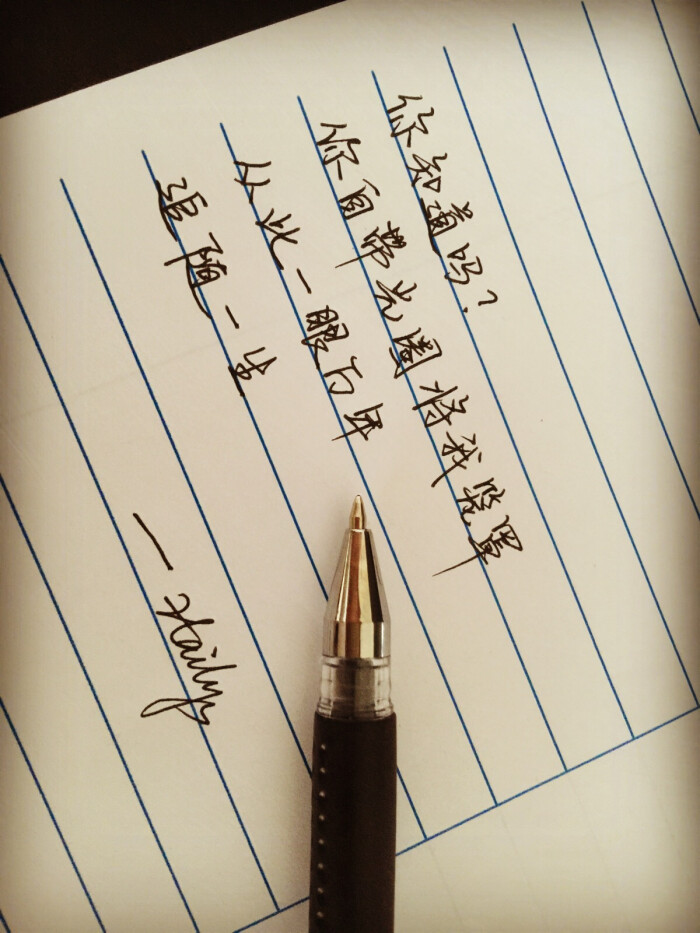 你知道吗?
你自带光圈将我笼罩
从此一眼万年
追随一生
—Hailys